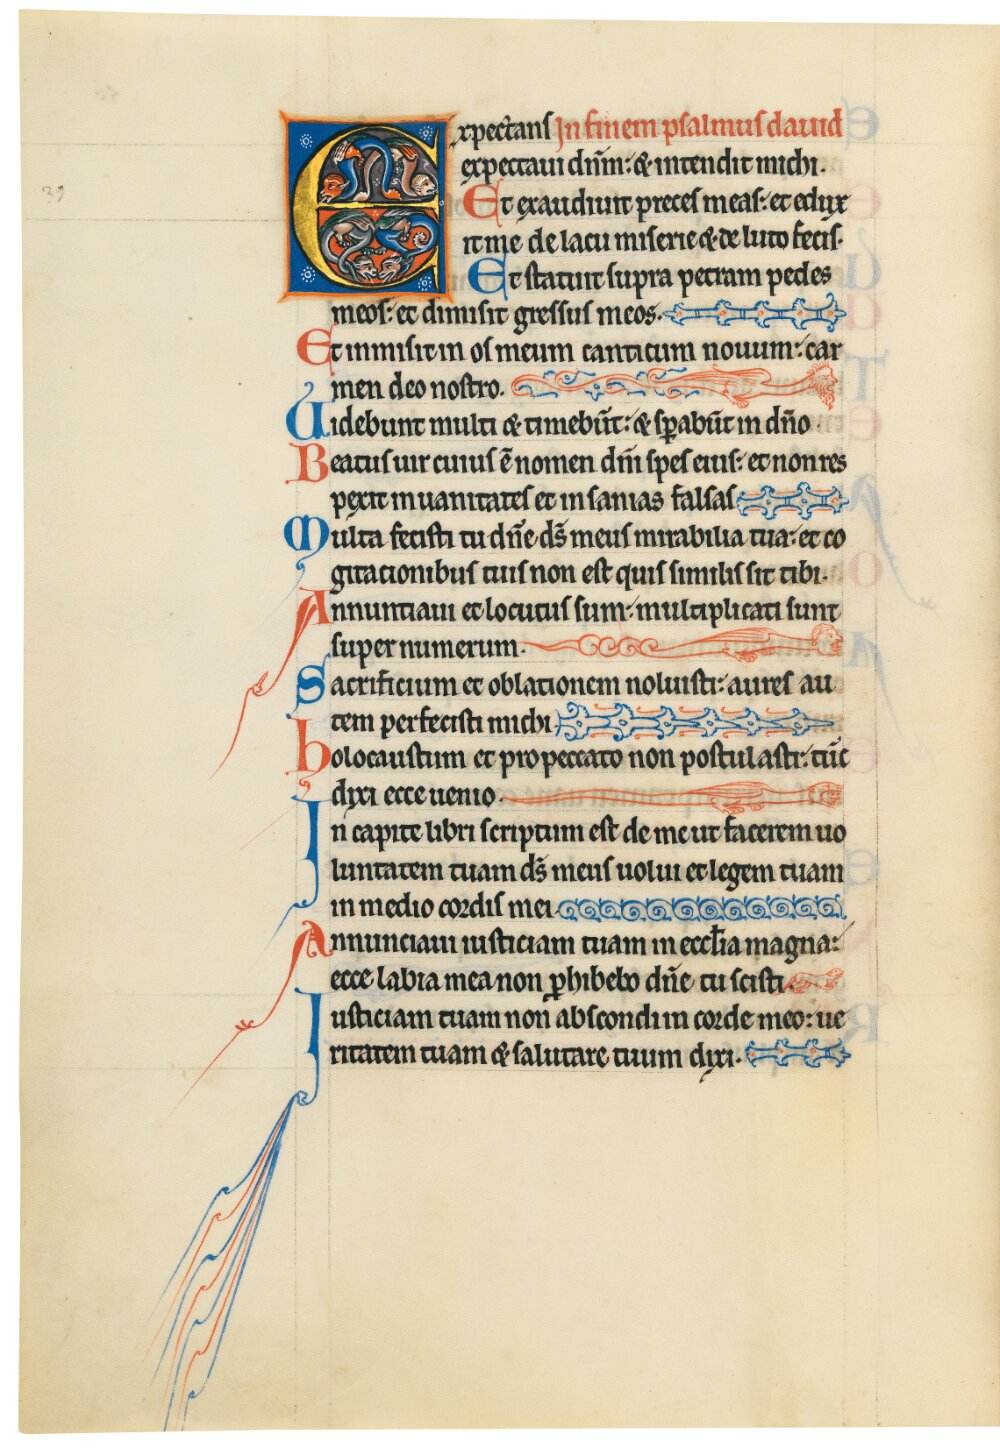 39
Expectans In finem psalmus dauid
expectaui dn̄m: & intendit michi.
Et exaudiuit preces meas: et edux
it me de lacu miserie & de luto fecis.
Et statuit supra petram pedes
meos: et dimisit gressus meos.
Et inmisit in os meum canticum nouum: car
men deo nostro.
Uidebunt multi & timebūt: & sꝑabūt in dn̄o
Beatus uir cuius ē nomen dn̄i spes eius: et non res
pexit in uanitates et insanias falsas
Multa fecisti tu dn̄e d̄s meus mirabilia tua: et co
gitacionibus tuis non est quis similis sit tibi.
Annuntiaui et locutus sum: multiplicati sunt
super numerum.
Sacrificium et oblationem noluisti: aures au
tem perfecisti michi
holocaustum et pro peccato non postulasti: tūc
dixi ecce uenio.
In capite libri scriptum est de me ut facerem uo
luntatem tuam d̄s meus uolui et legem tuam
in medio cordis mei
Annunciaui iusticiam tuam in eccl̄ia magna:
ecce labia mea non ꝓhibebo dn̄e tu scisti.
Iusticiam tuam non abscondi in corde meo: ue
ritatem tuam & salutare tuum dixi.